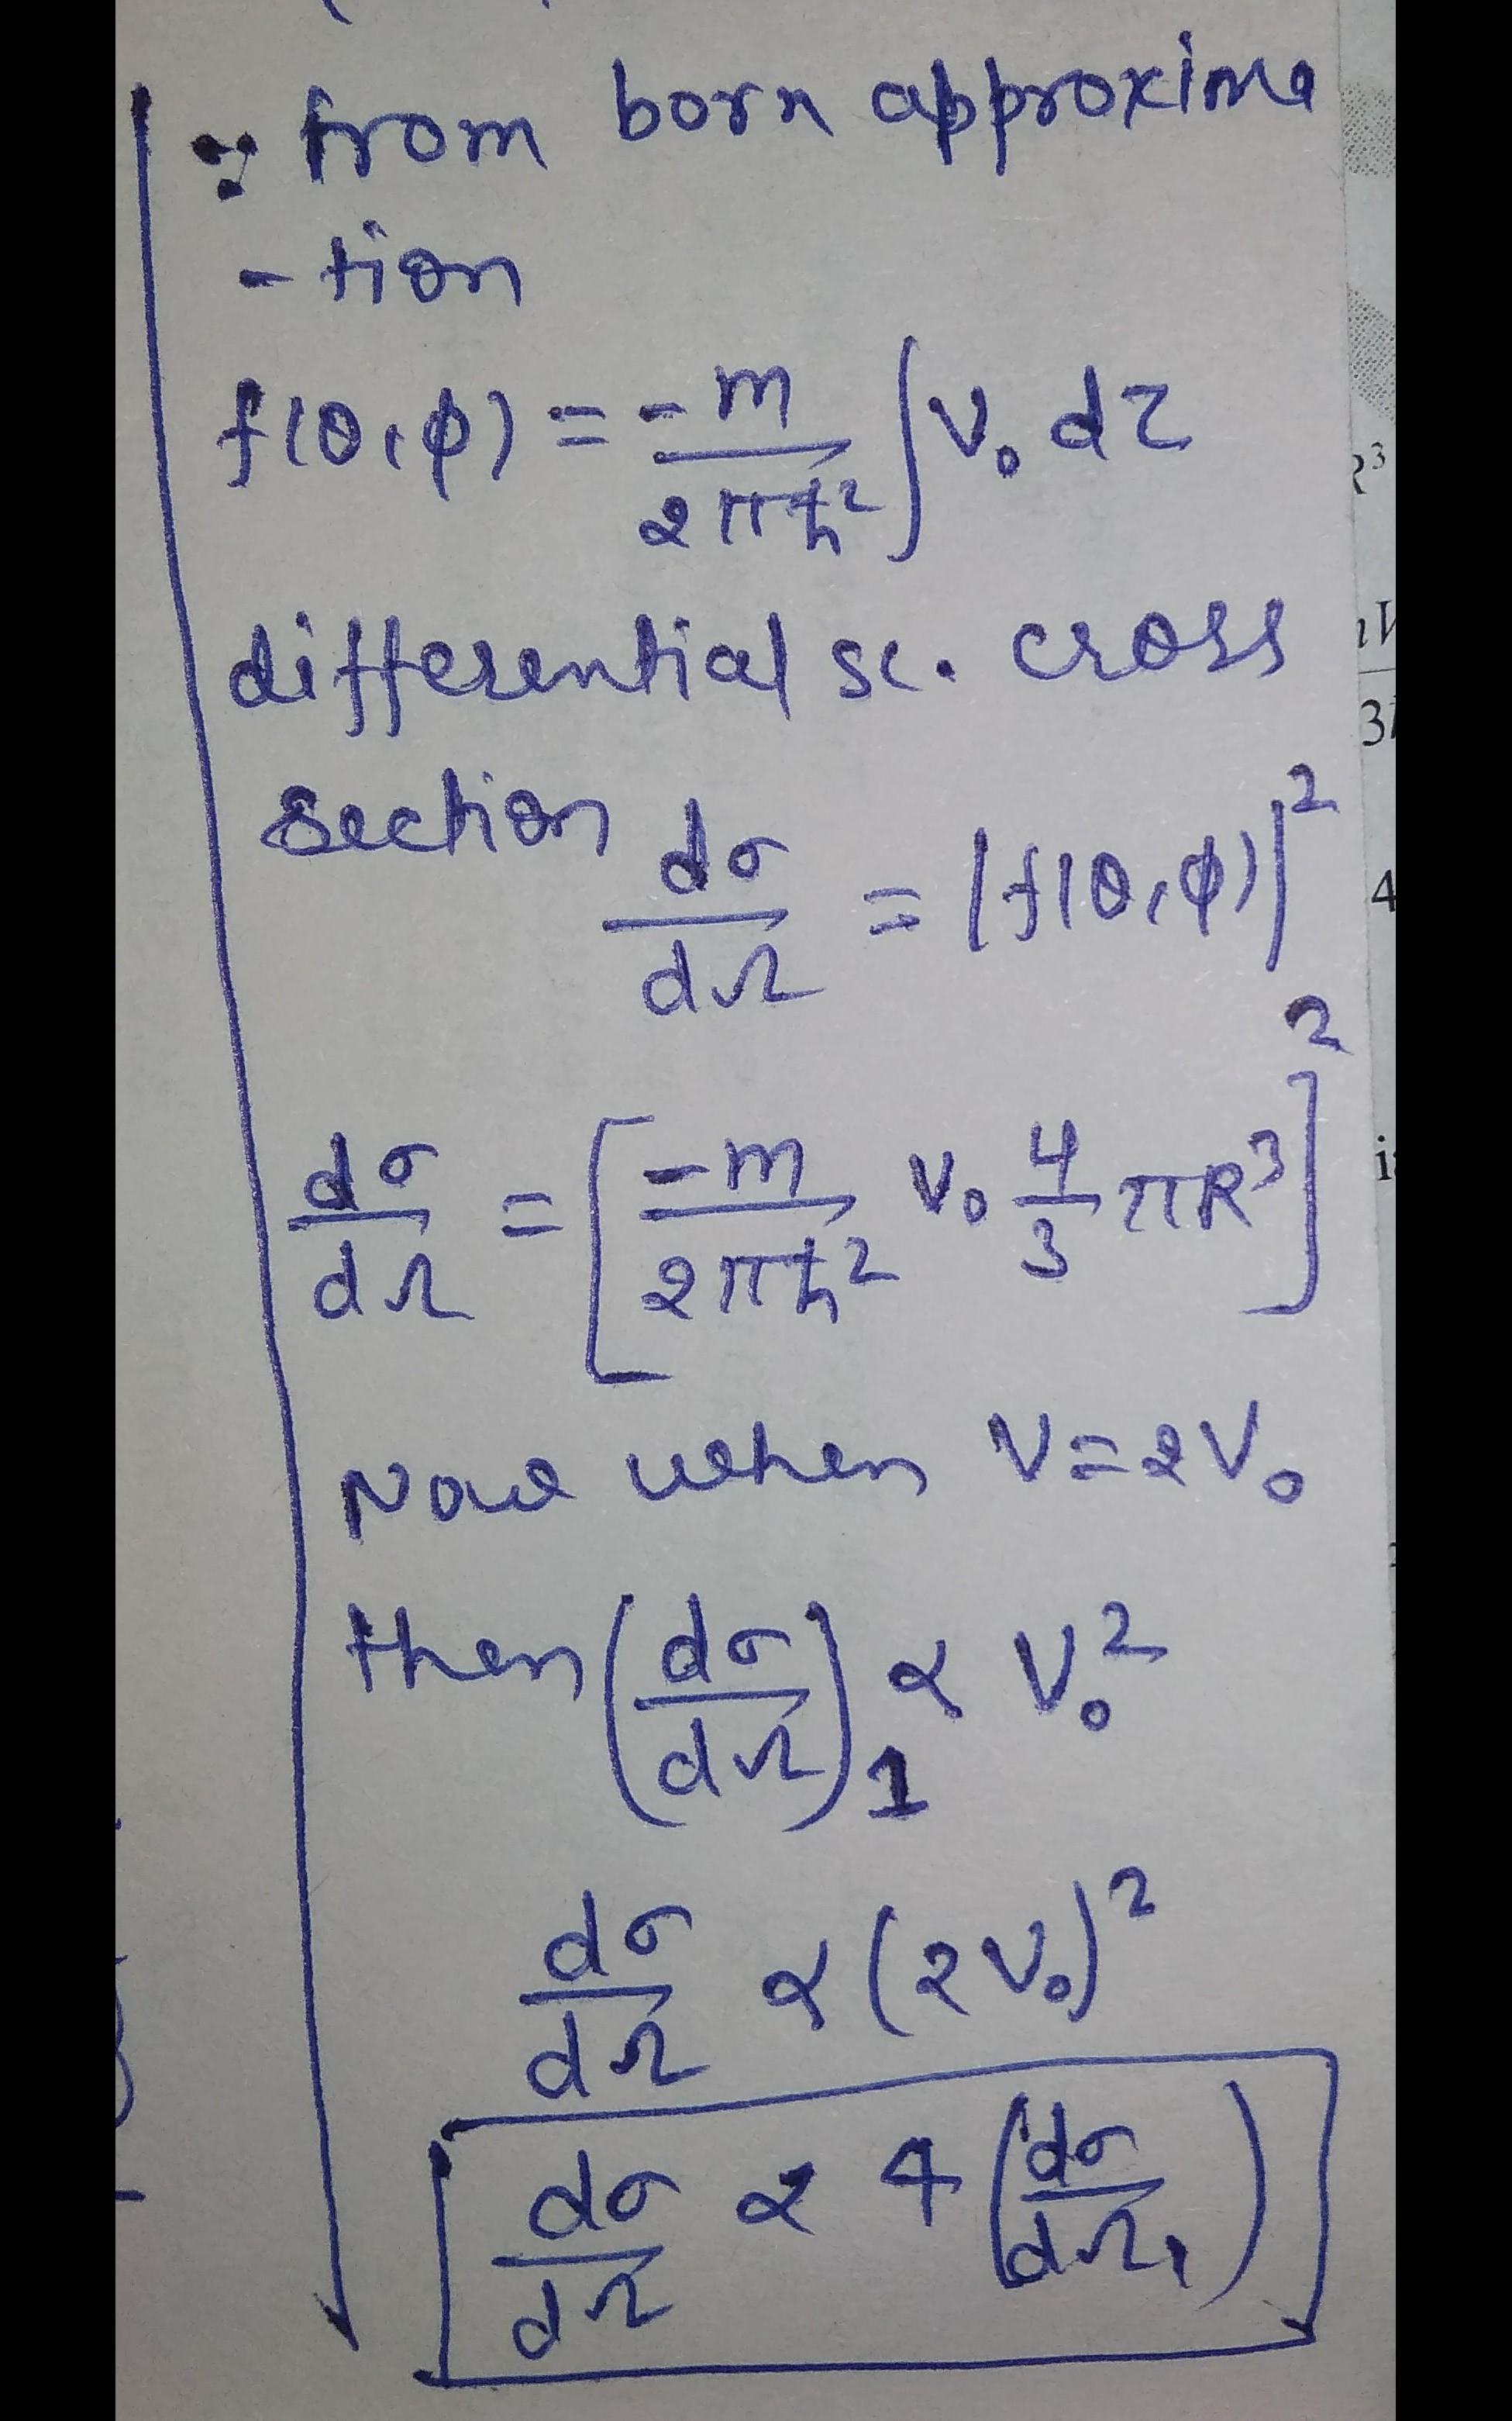 ∵ from born approxima
- tion
f(θ,φ) = -m/2πħ² ∫V₀ dτ
differential sc. cross
section
dσ/dΩ = |f(θ,φ)|²
dσ/dΩ = [-m/2πħ² V₀ 4/3 πR³]²
Now when V=2V₀
then (dσ/dΩ)₁ ∝ V₀²
dσ/dΩ ∝ (2V₀)²
dσ/dΩ ∝ 4(dσ/dΩ₁)
R³
3
4